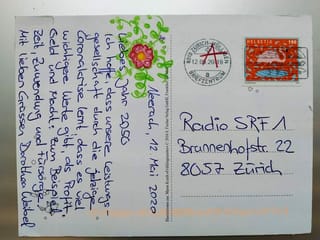 Neerach, 12 Mai 2020
Liebes Jahr 2050
Ich hoffe, dass unsere Leistungs-
gesellschaft durch die jetzige
Coronakrise lernt, dass es viel
wichtigere Werte gibt als Profit,
Geld und Macht, zum Beispiel
Zeit, Zuwendung und Fürsorge!
Mit lieben Grüssen, Dorothea
HELVETIA
A
BRIEFZENTRUM
Radio SRF 1
Brunnenhofstr. 22
8057 Zürich